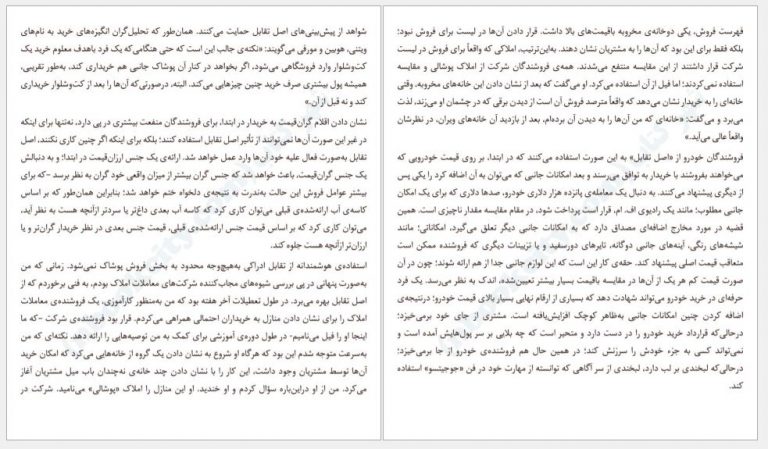 شواهد از پیش‌بینی‌های اصل تقابل حمایت می‌کنند. همان‌طور که تحلیل‌گران انگیزه‌های خرید به نام‌های
ویتنی، هوبین و مورفی می‌گویند: «نکته‌ی جالب این است که حتی هنگامی‌که یک فرد باهدف معلوم خرید یک
کت‌وشلوار وارد فروشگاهی می‌شود، اگر بخواهد در کنار آن پوشاک جانبی هم خریداری کند، به‌طور تقریبی،
همیشه پول بیشتری صرف خرید چنین چیزهایی می‌کند. البته، درصورتی‌که آن‌ها را بعد از کت‌وشلوار خریداری
کند و نه قبل از آن.»
نشان دادن اقلام گران‌قیمت به خریدار در ابتدا، برای فروشندگان منفعت بیشتری در پی دارد. نه‌تنها برای اینکه
در غیر این صورت آن‌ها نمی‌توانند از تأثیر اصل تقابل استفاده کنند؛ بلکه برای اینکه اگر چنین کاری نکنند، اصل
تقابل به‌صورت فعال علیه خود آن‌ها وارد عمل خواهد شد. ارائه‌ی یک جنس ارزان‌قیمت در ابتدا؛ و به دنبالش
یک جنس گران‌قیمت، باعث خواهد شد که جنس گران بیشتر از میزان واقعی خود گران به نظر برسد –که برای
بیشتر عوامل فروش این حالت به‌ندرت به نتیجه‌ی دلخواه ختم خواهد شد؛ بنابراین همان‌طور که بر اساس
کاسه‌ی آب ارائه‌شده‌ی قبلی می‌توان کاری کرد که کاسه آب بعدی داغ‌تر یا سردتر ازآنچه هست به نظر آید،
می‌توان کاری کرد که بر اساس قیمت جنس ارائه‌شده‌ی قبلی، قیمت جنس بعدی در نظر خریدار گران‌تر و یا
ارزان‌تر ازآنچه هست جلوه کند.
استفاده‌ی هوشمندانه از تقابل ادراکی به‌هیچ‌وجه محدود به بخش فروش پوشاک نمی‌شود. زمانی که من
به‌صورت پنهانی در پی بررسی شیوه‌های مجاب‌کننده شرکت‌های معاملات املاک بودم، به فنی برخوردم که از
اصل تقابل بهره می‌برد. در طول تعطیلات آخر هفته بود که من به‌منظور کارآموزی، یک فروشنده‌ی معاملات
املاک را برای نشان دادن منازل به خریداران احتمالی همراهی می‌کردم. قرار بود فروشنده‌ی شرکت –که ما
اینجا او را فیل می‌نامیم- در طول دوره‌ی آموزشی برای کمک به من توصیه‌هایی را ارائه دهد. نکته‌ای که من
به‌سرعت متوجه شدم این بود که هرگاه او شروع به نشان دادن یک گروه از خانه‌هایی می‌کرد که امکان خرید
آن‌ها توسط مشتریان وجود داشت، این کار را با نشان دادن چند خانه‌ی نه‌چندان باب میل مشتریان آغاز
می‌کرد. من از او دراین‌باره سؤال کردم و او خندید. او این منازل را املاک «پوشالی» می‌نامید. شرکت در
فهرست فروش، یکی دوخانه‌ی مخروبه باقیمت‌های بالا داشت. قرار دادن آن‌ها در لیست برای فروش نبود؛
بلکه فقط برای این بود که آن‌ها را به مشتریان نشان دهند. به‌این‌ترتیب، املاکی که واقعاً برای فروش در لیست
شرکت قرار داشتند از این مقایسه منتفع می‌شدند. همه‌ی فروشندگان شرکت از املاک پوشالی و مقایسه
استفاده نمی‌کردند؛ اما فیل از آن استفاده می‌کرد. او می‌گفت که بعد از نشان دادن این خانه‌های مخروبه، وقتی
خانه‌ای را به خریدار نشان می‌دهد که واقعاً مترصد فروش آن است از دیدن برقی که در چشمان او می‌زند، لذت
می‌برد و می‌گفت: «خانه‌ای که من آن‌ها را به دیدن آن برده‌ام، بعد از بازدید آن خانه‌های ویران، در نظرشان
واقعاً عالی می‌آید.»
فروشندگان خودرو از «اصل تقابل» به این صورت استفاده می‌کنند که در ابتدا، بر روی قیمت خودرویی که
می‌خواهند بفروشند با خریدار به توافق می‌رسند و بعد امکانات جانبی که می‌توان به آن اضافه کرد را یکی پس
از دیگری پیشنهاد می‌کنند. به دنبال یک معامله‌ی پانزده هزار دلاری خودرو، صدها دلاری که برای یک امکان
جانبی مطلوب؛ مانند یک رادیوی اف. ام. قرار است پرداخت شود، در مقام مقایسه مقدار ناچیزی است. همین
قضیه در مورد مخارج اضافه‌ای مصداق دارد که به امکانات جانبی دیگر تعلق می‌گیرد، امکاناتی؛ مانند
شیشه‌های رنگی، آینه‌های جانبی دوگانه، تایرهای دورسفید و یا تزیینات دیگری که فروشنده ممکن است
متعاقب قیمت اصلی پیشنهاد کند. حقه‌ی کار این است که این لوازم جانبی جدا از هم ارائه شوند؛ چون در آن
صورت قیمت کم هر یک از آن‌ها در مقایسه باقیمت بسیار بیشتر تعیین‌شده، اندک به نظر می‌رسد. یک فرد
حرفه‌ای در خرید خودرو می‌تواند شهادت دهد که بسیاری از ارقام نهایی بسیار بالای قیمت خودرو؛ درنتیجه‌ی
اضافه کردن چنین امکانات جانبی به‌ظاهر کوچک افزایش‌یافته است. مشتری از جای خود برمی‌خیزد؛
درحالی‌که قرارداد خرید خودرو را در دست دارد و متحیر است که چه بلایی بر سر پول‌هایش آمده است و
نمی‌تواند کسی به جزء خودش را سرزنش کند؛ در همین حال هم فروشنده‌ی خودرو از جا برمی‌خیزد؛
درحالی‌که لبخندی بر لب دارد، لبخندی از سر آگاهی که توانسته از مهارت خود در فن «جوجیتسو» استفاده
کند.